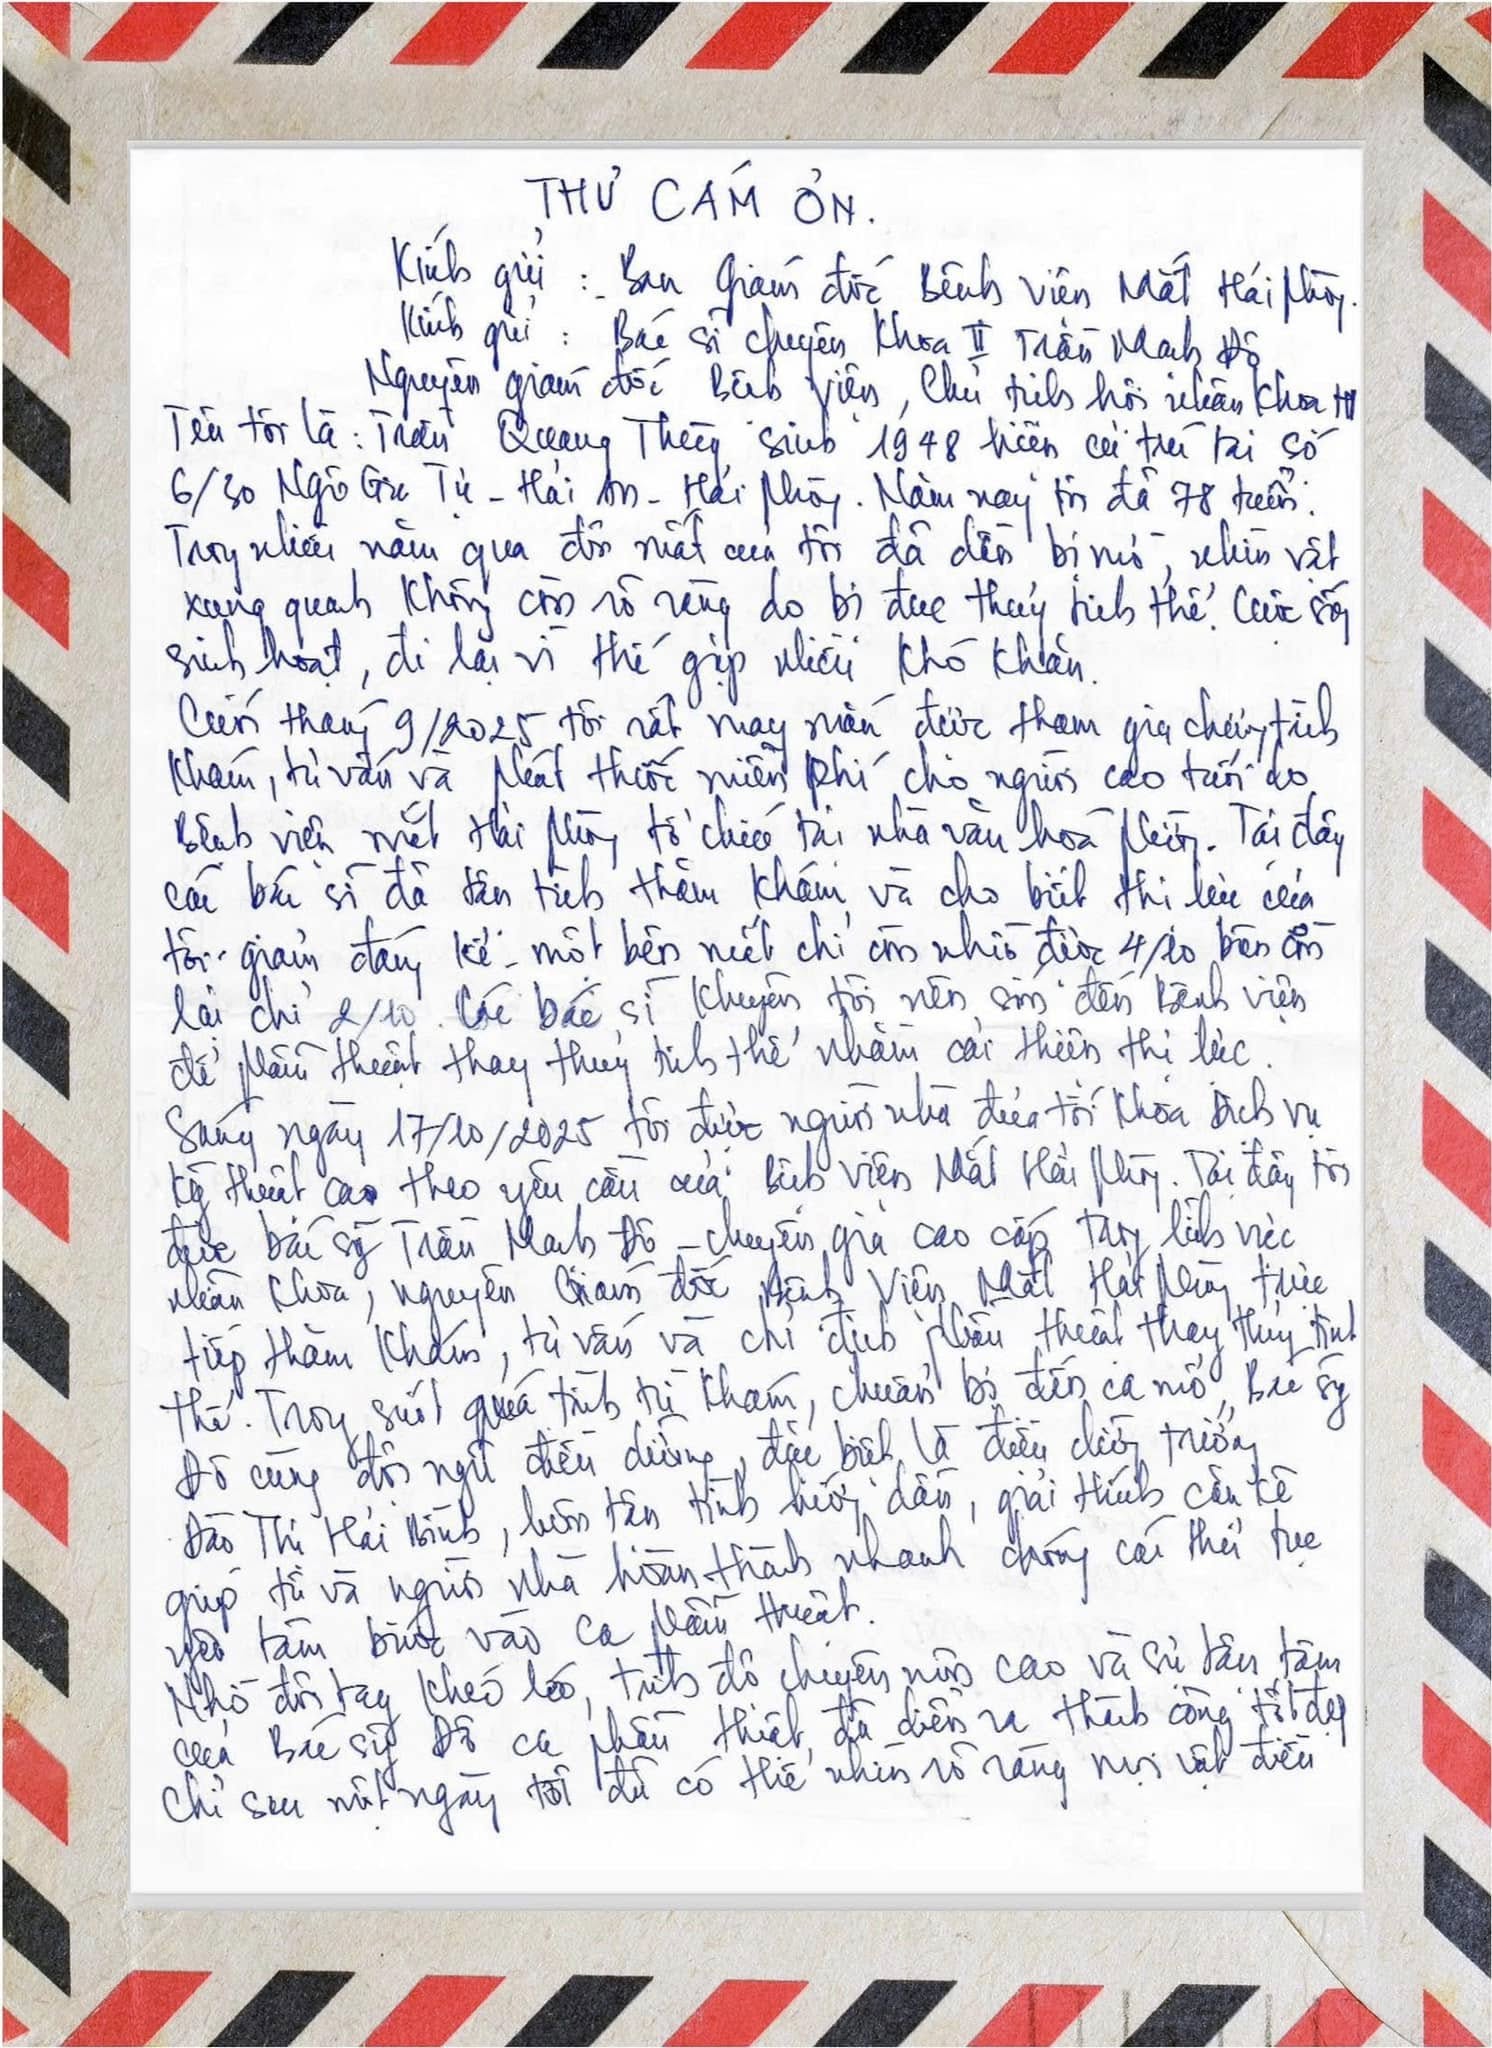 THƯ CẢM ƠN.
Kính gửi : - Ban Giám đốc Bệnh viện Mắt Hải Phòng.
Kính gửi : Bác sĩ chuyên khoa II Trần Mạnh Đô
Nguyên giám đốc Bệnh viện, Chủ tịch hội nhãn khoa
Tên tôi là : Trần Quang Thùy sinh 1948 hiện cư trú tại số
6/30 Ngô Gia Tự - Hải An - Hải Phòng. Năm nay tôi đã 78 tuổi.
Trong nhiều năm qua đôi mắt của tôi đã dần bị mờ, nhìn vật
xung quanh không còn rõ ràng do bị đục thuỷ tinh thể. Cuộc sống
sinh hoạt, đi lại vì thế gặp nhiều khó khăn.
Cuối tháng 9/2025 tôi rất may mắn được tham gia chương trình
khám, tư vấn và phát thuốc miễn phí cho người cao tuổi do
Bệnh viện mắt Hải Phòng tổ chức tại nhà văn hoá phường. Tại đây
các bác sĩ đã tận tình thăm khám và cho biết thị lực của
tôi giảm đáng kể - một bên mắt chỉ còn nhìn được 4/10 bên còn
lại chỉ 2/10. Các bác sĩ khuyên tôi nên sớm đến Bệnh viện
để phẫu thuật thay thuỷ tinh thể nhằm cải thiện thị lực.
Sáng ngày 17/10/2025 tôi được người nhà đưa tới khoa Dịch vụ
kỹ thuật cao theo yêu cầu của Bệnh viện Mắt Hải Phòng. Tại đây tôi
được bác sỹ Trần Mạnh Đô - chuyên gia cao cấp trong lĩnh vực
nhãn khoa, nguyên Giám đốc Bệnh viện Mắt Hải Phòng trực
tiếp thăm khám, tư vấn và chỉ định phẫu thuật thay thủy tinh
thể. Trong suốt quá trình từ khám, chuẩn bị đến ca mổ, Bác sỹ
Đô cùng đội ngũ điều dưỡng, đặc biệt là điều dưỡng trưởng
Đào Thị Hải Bình, luôn tận tình hướng dẫn, giải thích cặn kẽ
giúp tôi và người nhà hoàn thành nhanh chóng các thủ tục
yên tâm bước vào ca phẫu thuật.
Nhờ đôi tay khéo léo, trình độ chuyên môn cao và sự tận tâm
của Bác sỹ Đô ca phẫu thuật đã diễn ra thành công tốt đẹp
chỉ sau một ngày tôi đã có thể nhìn rõ ràng mọi vật điều